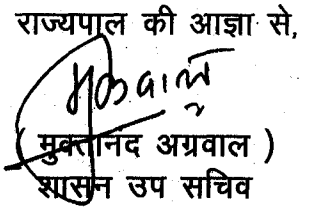 राज्यपाल की आज्ञा से,
( मुक्तानंद अग्रवाल )
शासन उप सचिव